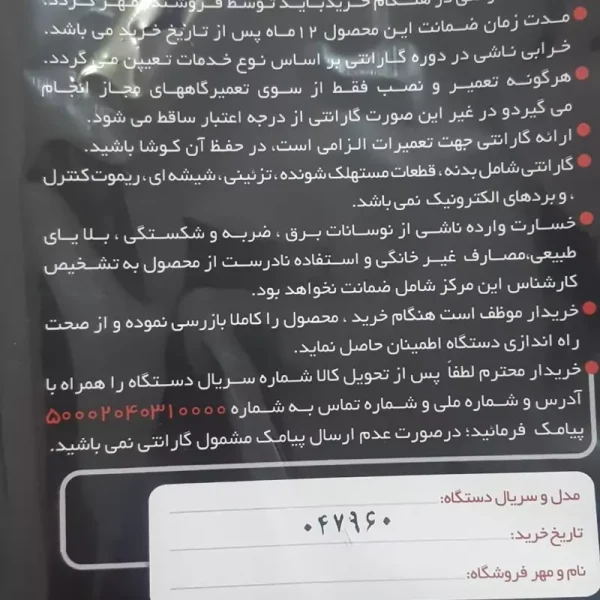 در هنگام خرید باید توسط فروشنده مهر گردد.
مدت زمان ضمانت این محصول ۱۲ماه پس از تاریخ خرید می باشد.
خرابی ناشی در دوره گارانتی بر اساس نوع خدمات تعیین می گردد.
هرگونه تعمیر و نصب فقط از سوی تعمیرگاههای مجاز انجام
می گیردو در غیر این صورت گارانتی از درجه اعتبار ساقط می شود.
ارائه گارانتی جهت تعمیرات الزامی است، در حفظ آن کوشا باشید.
گارانتی شامل بدنه، قطعات مستهلک شونده، تزئینی، شیشه ای، ریموت کنترل
، و بردهای الکترونیک نمی باشد.
خسارت وارده ناشی از نوسانات برق ، ضربه و شکستگی ، بلا یای
طبیعی،مصارف غیر خانگی و استفاده نادرست از محصول به تشخیص
کارشناس این مرکز شامل ضمانت نخواهد بود.
خریدار موظف است هنگام خرید ، محصول را کاملا بازرسی نموده و از صحت
راه اندازی دستگاه اطمینان حاصل نماید.
خریدار محترم لطفاً پس از تحویل کالا شماره سریال دستگاه را همراه با
آدرس و شماره ملی و شماره تماس به شماره ۵۰۰۰۲۰۴۰۳۱۰۰۰۰
پیامک فرمائید؛ درصورت عدم ارسال پیامک مشمول گارانتی نمی باشید.
مدل و سریال دستگاه:
۰۴۷۹۶۰
تاریخ خرید:
نام و مهر فروشگاه: